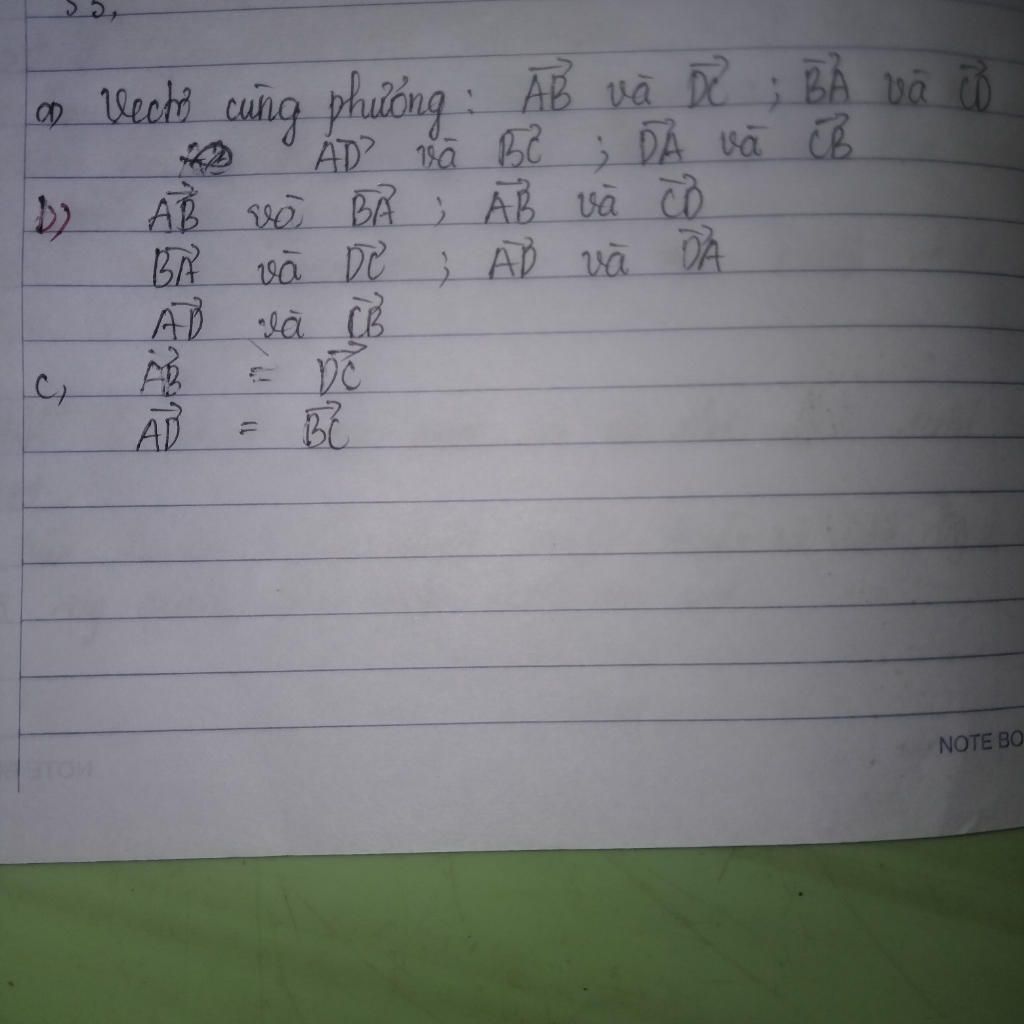 a) Vectơ cùng phương: AB và DC ; BA và CD
AD và BC ; DA và CB
b) AB và BA ; AB và CD
BA và DC ; AD và DA
AD và CB
c, AB = DC
AD = BC
NOTE BO